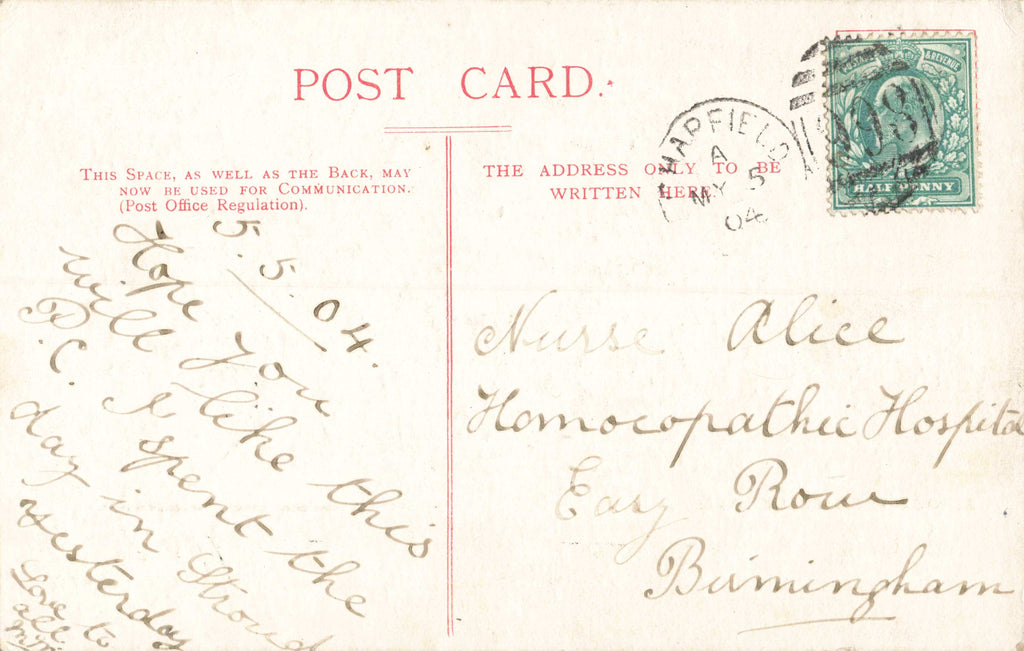 POST CARD.
THIS SPACE, AS WELL AS THE BACK, MAY
NOW BE USED FOR COMMUNICATION.
(Post Office Regulation).
THE ADDRESS ONLY TO BE
WRITTEN HERE
CHARFIELD
A
MY 5
04
POSTAGE & REVENUE
HALFPENNY
5.5.04.
Hope you
will like this
P.C. I spent the
day in Stroud
yesterday
Love to
all
Nurse Alice
Homoeopathic Hospita
Easy Row
Birmingham